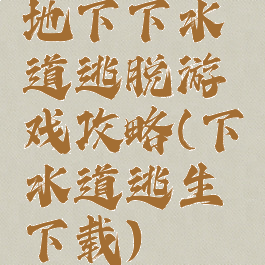 地下下水
道逃脱游
戏攻略(下
水道逃生
下载)